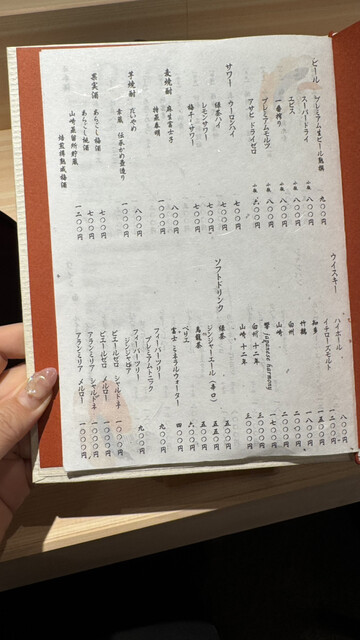 ビール
プレミアム生ビール熟撰 九〇〇円
スーパードライ 小瓶 八〇〇円
エビス 小瓶 八〇〇円
一番搾り 小瓶 八〇〇円
プレミアムモルツ 小瓶 八〇〇円
アサヒ ドライゼロ 小瓶 六〇〇円
サワー
ウーロンハイ 七〇〇円
緑茶ハイ 七〇〇円
レモンサワー 七〇〇円
梅干・サワー 七〇〇円
麦焼酎
麻生富士子 八〇〇円
特蒸泰明 一〇〇〇円
芋焼酎
だいやめ 八〇〇円
幸蔵 伝承かめ壺造り 一〇〇〇円
果実酒
あらごし梅酒 七〇〇円
あらごし桃酒 七〇〇円
山崎蒸留所貯蔵
焙煎樽熟成梅酒 一二〇〇円
ウイスキー
ハイボール 八〇〇円
イチローズモルト 一二〇〇円
知多 一五〇〇円
竹鶴 一八〇〇円
白州 二〇〇〇円
山崎 二〇〇〇円
響 Japanese harmony 一七〇〇円
白州 十二年 三〇〇〇円
山崎 十二年 三〇〇〇円
ソフトドリンク
緑茶 五〇〇円
烏龍茶 五〇〇円
ジンジャーエール(辛口) 五五〇円
ペリエ 六〇〇円
富士ミネラルウォーター 四〇〇円
フィーバーツリー
プレミアムトニック 九〇〇円
フィーバーツリー
ジンジャービア 九〇〇円
ピエールゼロ シャルドネ 一〇〇〇円
ピエールゼロ メルロー 一〇〇〇円
アランミリア シャルドネ 一〇〇〇円
アランミリア メルロー 一〇〇〇円